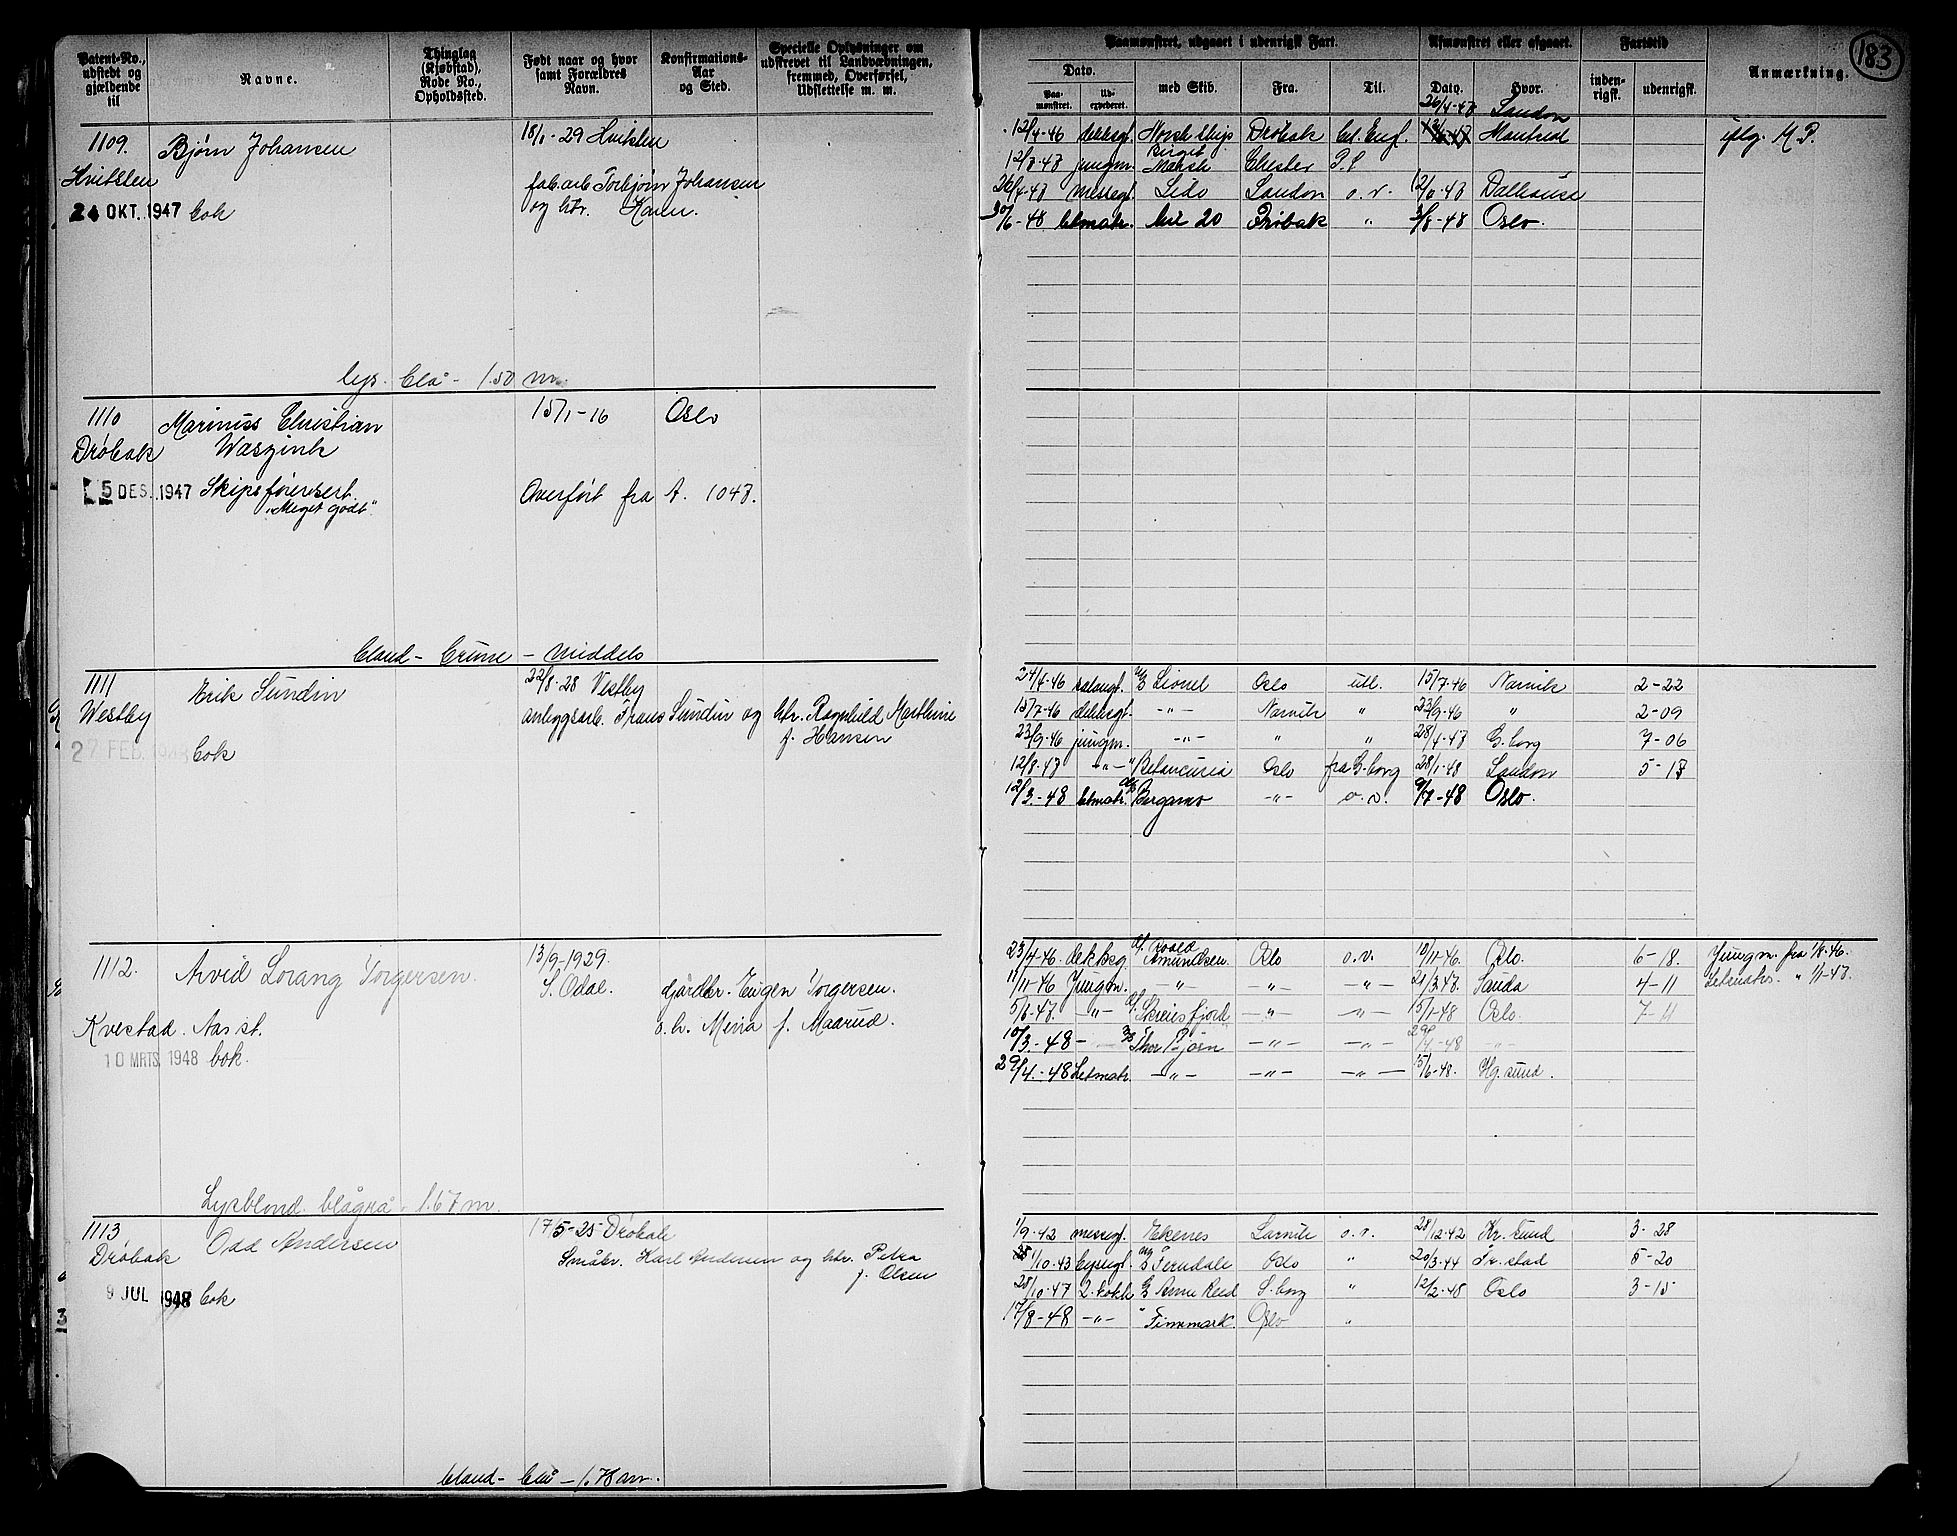 183
Patent-No., udstedt og gjældende til
Navne.
Thinglag (Kjøbstad), Rode No., Opholdssted.
Født naar og hvor samt Forældres Navn.
Konfirmations-Aar og Sted.
Specielle Oplysninger om udskrevet til Landværbningen, fremmed, Overførsel, Udslettelse m. m.
Paamønstret, udgaaet i udenrigsk Fart.
Afmønstret eller afgaaet.
Fartstid
Anmærkning.
Dato.
Paa-mønstret.
Ud-expederet.
med Skib.
Fra.
Til.
Dato.
Hvor.
inden-rigsk.
udenrigsk.
1109. Bjørn Johansen 18/1-29 Hvitsten
Hvitsten fab.arb. Torbjørn Johansen
24 OKT. 1947 bok og htr. Karen.
lys. blå - 1.50 m.
26/4-47 London
12/4-46 dekksgt. Norsk skip Drøbak Montreal iflg. M.P.
jungm. Chester
26/4-47 messegt. Lido London o.v.
30/6-48 letmatr. 20 Drøbak " 3/8-48 Oslo.
1110 Marinuss Christian 15/1-16 Oslo
Drøbak Waszink
5 DES. 1947 Skipsførersert. Overført fra A. 1047.
"Meget godt"
bland - brune - middels
1111 Erik Sundin 22/8-28 Vestby
Westby anleggsarb. Frans Sundin og htr. Ragnhild Marthine
f. Hansen
27 FEB. 1948 bok
24/4-46 salongt. M/S Lionel Oslo utl. 15/7-46 Narvik 2-22
15/7-46 dekksgt. -"- Narvik " 23/9-46 " 2-09
23/9-46 jungm. -"- " " 28/4-47 G.borg 7-06
12/8-47 -"- " Betancuria Oslo fra G.borg 28/1-48 London 5-17
12/3-48 letmatr. Bergamo -"- o.v. 9/7-48 Oslo.
1112. Arvid Lorang Torgersen. 13/9-1929.
S. Odal. Gårdbr. Eugen Torgersen.
Kvestad. Aas st. o.h. Mina f. Maarud.
10 MRTS. 1948 bok.
Lysblond. blågrå - 1.67 m.
23/4-46. dekksg. Roald Amundsen. Oslo o.v. 10/11-46. Oslo. 6-18. Jungm. fra 1/8-46.
11/11-46 Jungm. -"- -"- -"- 21/3-47. Sauda 4-11 Letmatr. " 1/1-47.
5/6-47. -"- Skiensfjord -"- -"- 15/1-48 Oslo. 7-11
10/3.-48 - Thor Bjørn -"- -"- 29/4-48 -"-
29/4.-48 Letmatr. -"- -"- -"- 15/6-48. Hg.sund.
1113 Odd Andersen 17/5-25 Drøbak
Drøbak Småbr. Karl Andersen og htr. Petra
f. Olsen
9 JUL 1948 bok
bland - blå - 1.78 m.
1/9-42 messegt. Ekenes Larvik o.v. 28/12-42 Kr.sund 3-28
1/10-43 byssegt. Ferndale Oslo " 20/3-44 Fr.stad 5-20
28/10-47 2. kokk Anna Reed S.borg " 12/2-48 Oslo 3-15
17/8-48 -"- " Finnmark. Oslo "